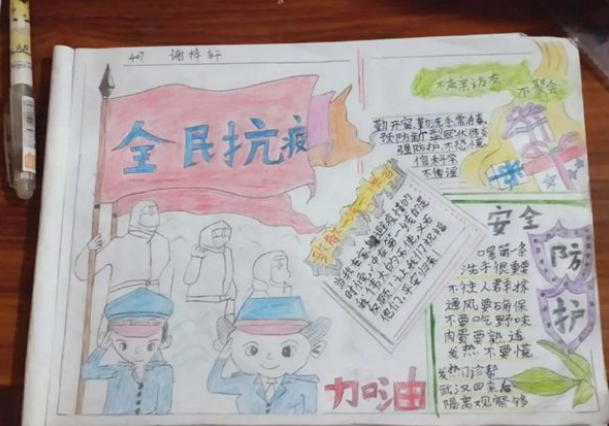 407 谢梓轩
全民抗疫
不走亲访友
不聚会
勤开窗,勤洗手,常消毒,
预防新型冠状肺炎
强防护,不恐慌
信科学
不传谣
致敬
当我在家躲避疫情的
时候,
义无
反顾,
祝福
他们,平安归来
加油
安全
防护
口罩第一条
洗手很重要
不往人群挤
通风要确保
不要吃野味
肉蛋要熟透
发热不要慌
发热门诊帮
武汉回来后
隔离观察够